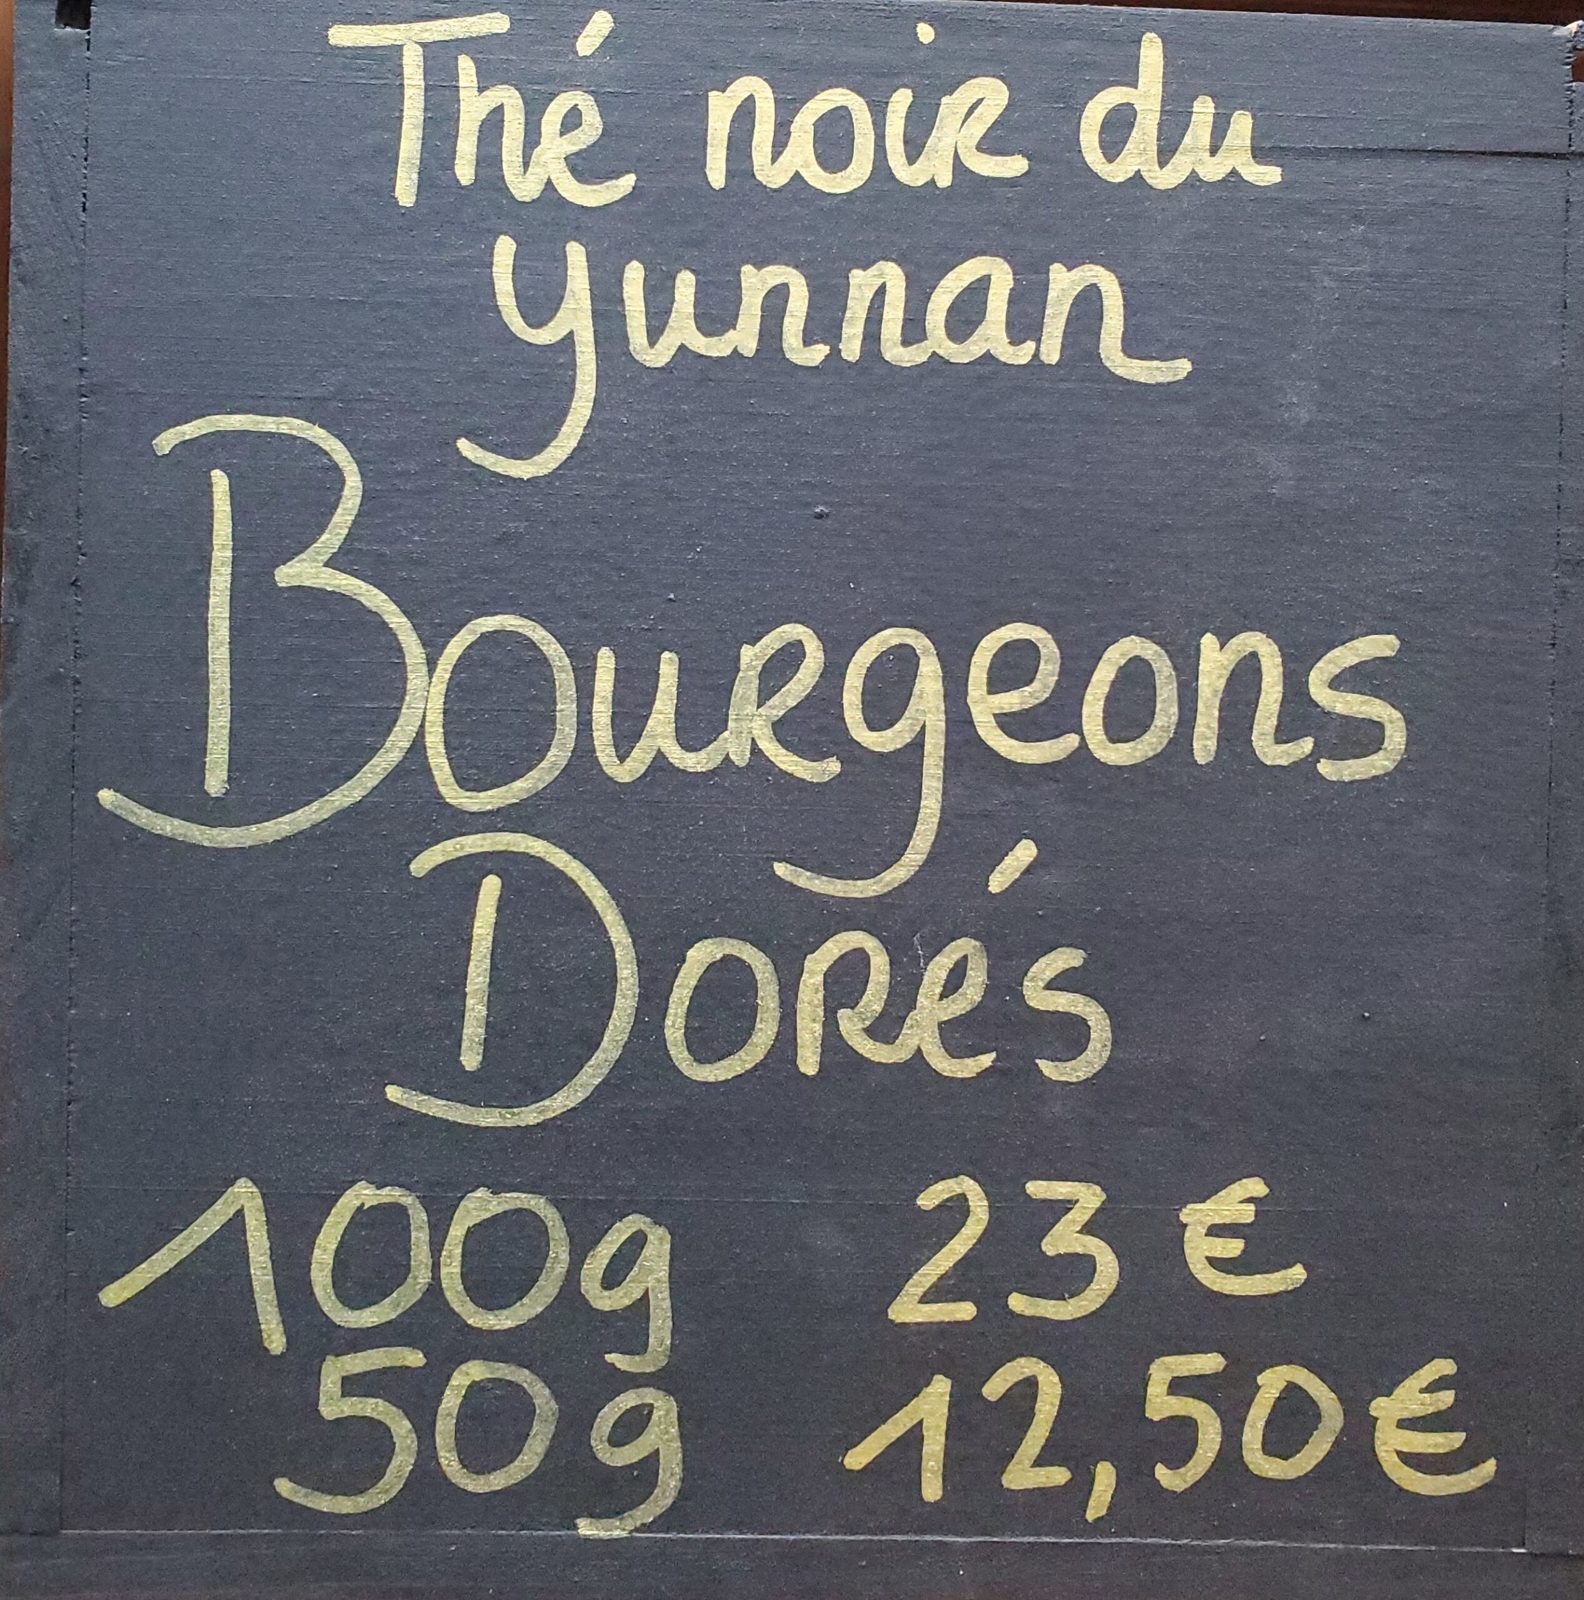 Thé noir du
Yunnan
Bourgeons
Dorés
100g 23 €
50g 12,50 €